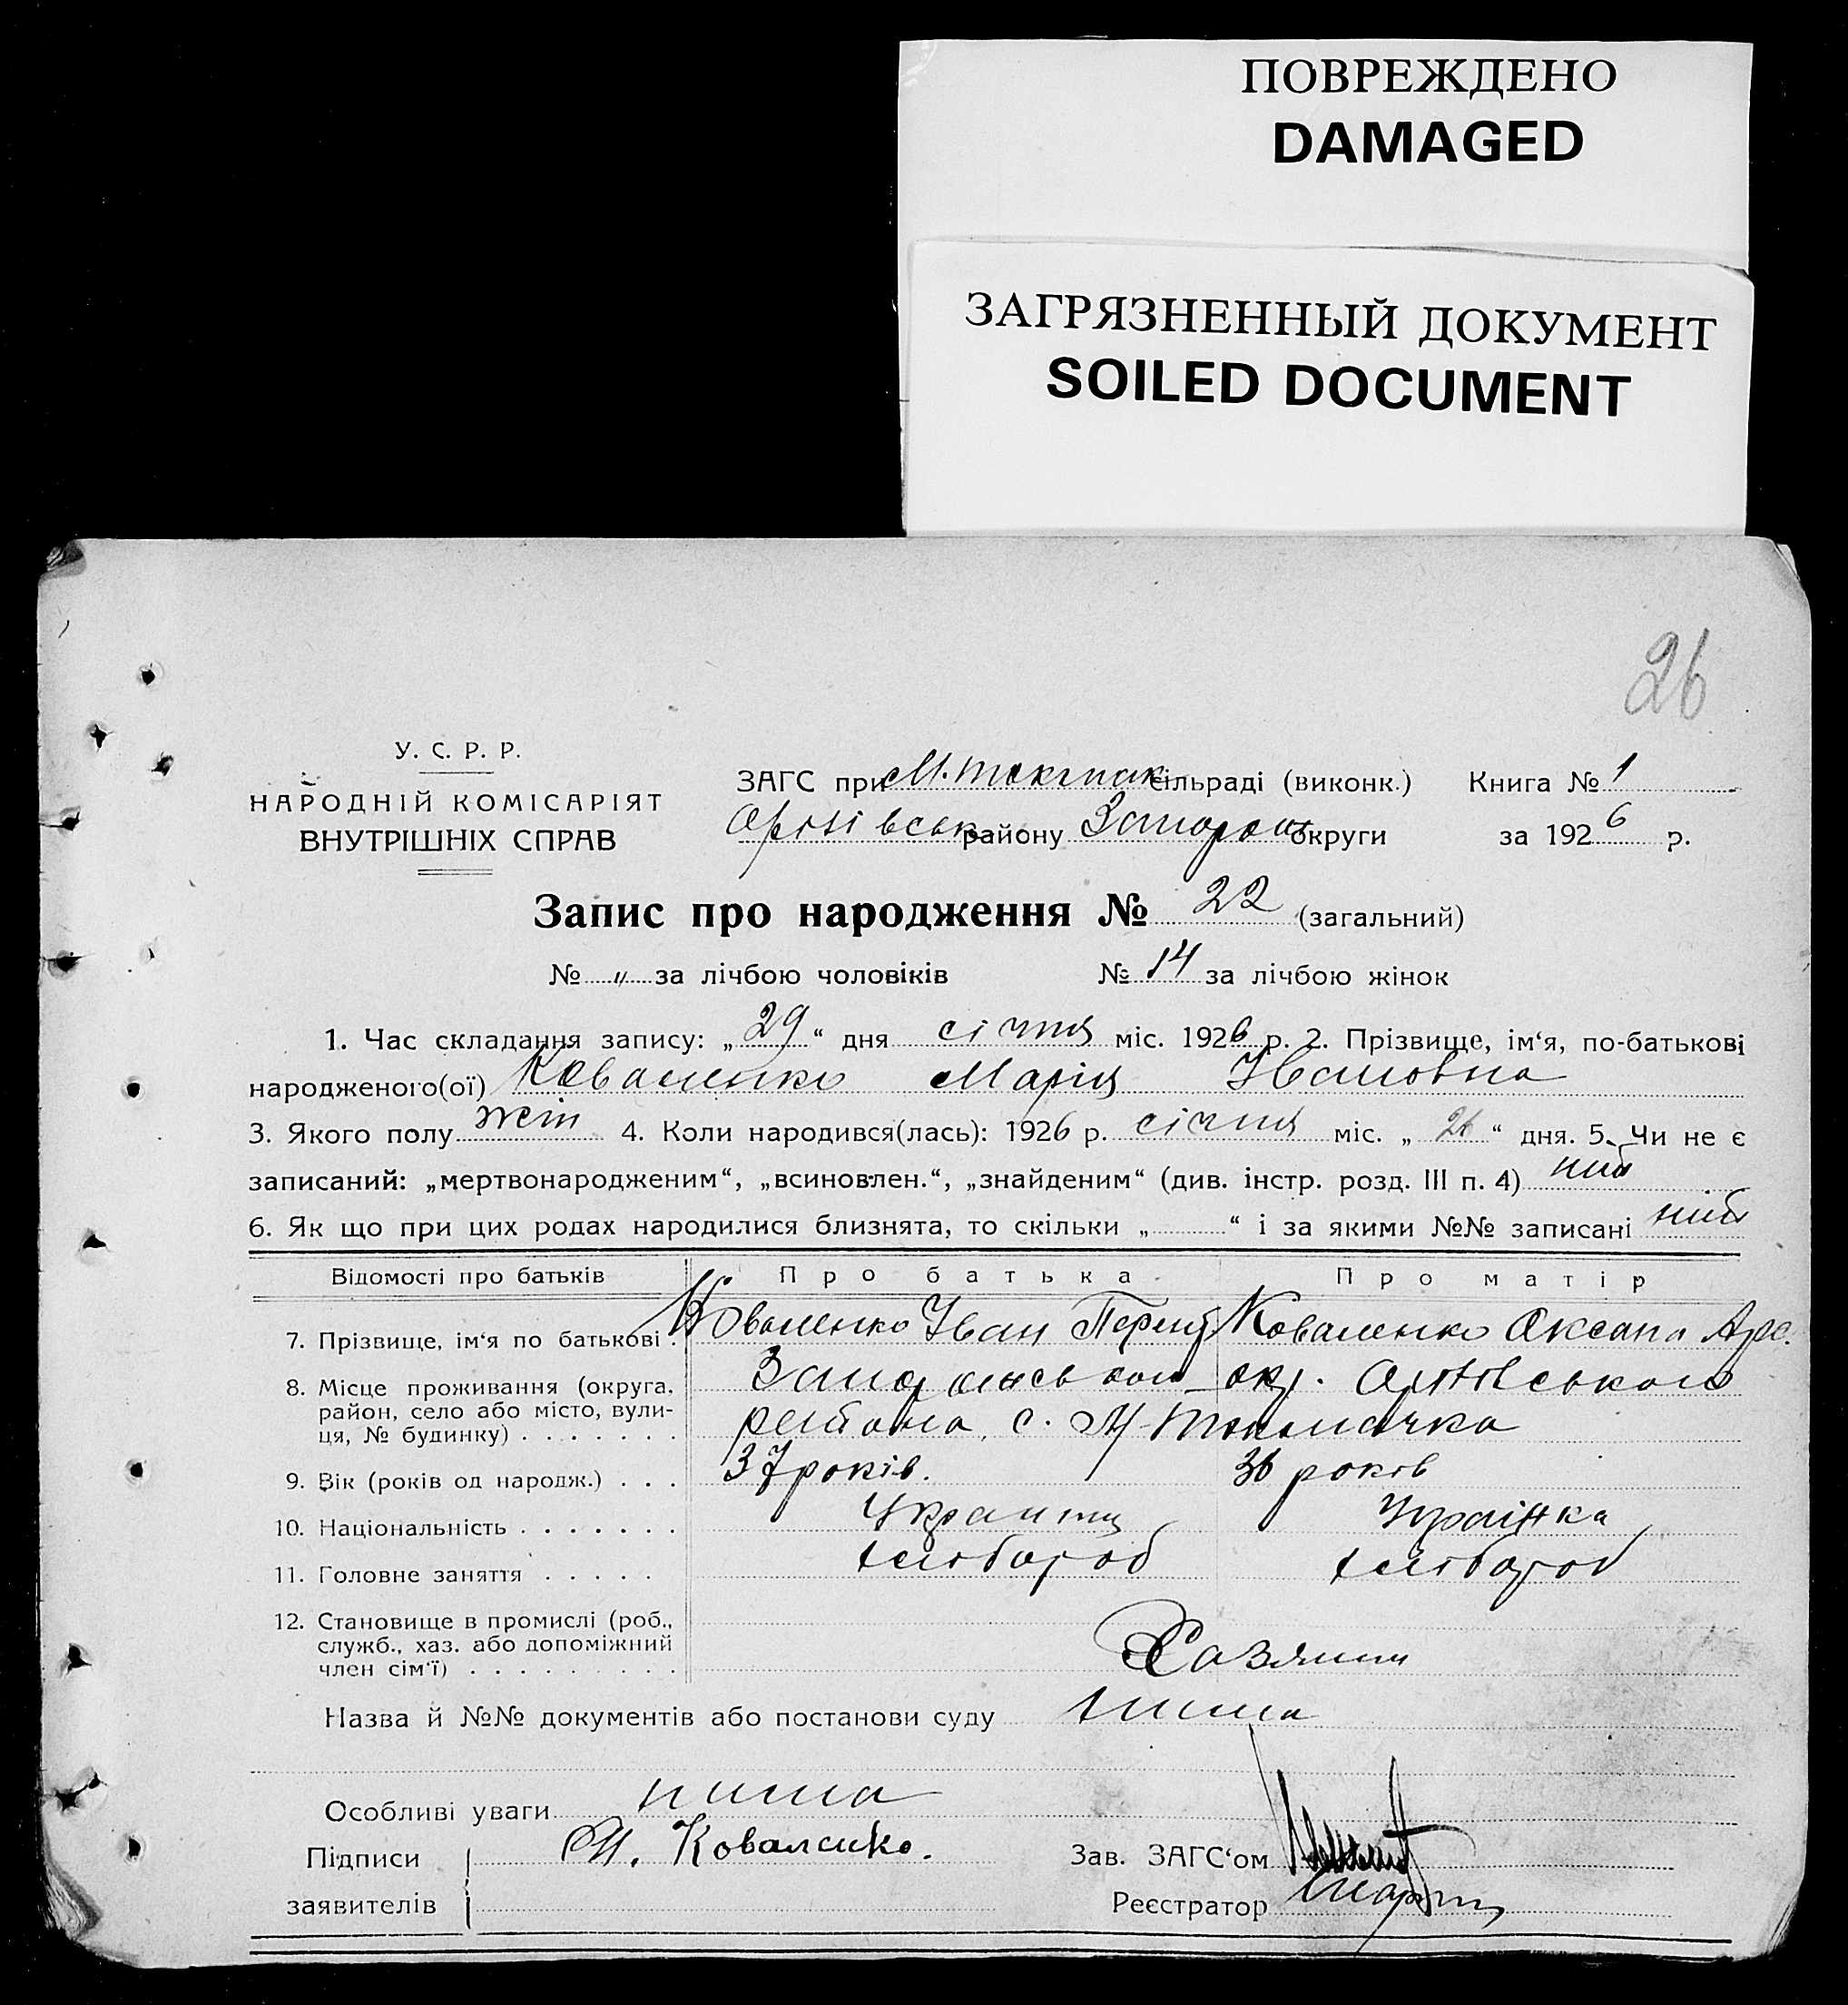 ПОВРЕЖДЕНО
DAMAGED
ЗАГРЯЗНЕННЫЙ ДОКУМЕНТ
SOILED DOCUMENT
26
У. С. Р. Р.
НАРОДНІЙ КОМІСАРІЯТ
ВНУТРІШНІХ СПРАВ
ЗАГС при М. Токмак сільраді (виконк.) Книга № 1
Оріхівськ району Запорож округи за 1926 р.
Запис про народження № 22 (загальний)
№ „ за лічбою чоловіків № 14 за лічбою жінок
1. Час складання запису: „29“ дня січня міс. 1926 р. 2. Прізвище, ім‘я, по-батькові
народженого(ої) Коваленко Марія Івановна
3. Якого полу жін 4. Коли народився(лась): 1926 р. січня міс. „26“ дня. 5. Чи не є
записаний: „мертвонародженим“, „всиновлен.“, „знайденим“ (див. інстр. розд. III п. 4)
6. Як що при цих родах народилися близнята, то скільки „ “ і за якими №№ записані
Відомості про батьків Про батька Про матір
7. Прізвище, ім‘я по батькові Коваленко Іван Коваленко Оксана
8. Місце проживання (округа, район, село або місто, вулиця, № будинку) окр. Оріхівського
района, с. М-Токмачка
9. Вік (років од народж.) 37 років. 36 років
10. Національність Украинец Українка
11. Головне заняття хлібороб хлібороб
12. Становище в промислі (роб., служб., хаз. або допоміжний член сім‘ї)
Назва й №№ документів або постанови суду нима
Особливі уваги нима
Підписи И. Коваленко. Зав. ЗАГС‘ом
заявителів Реєстратор